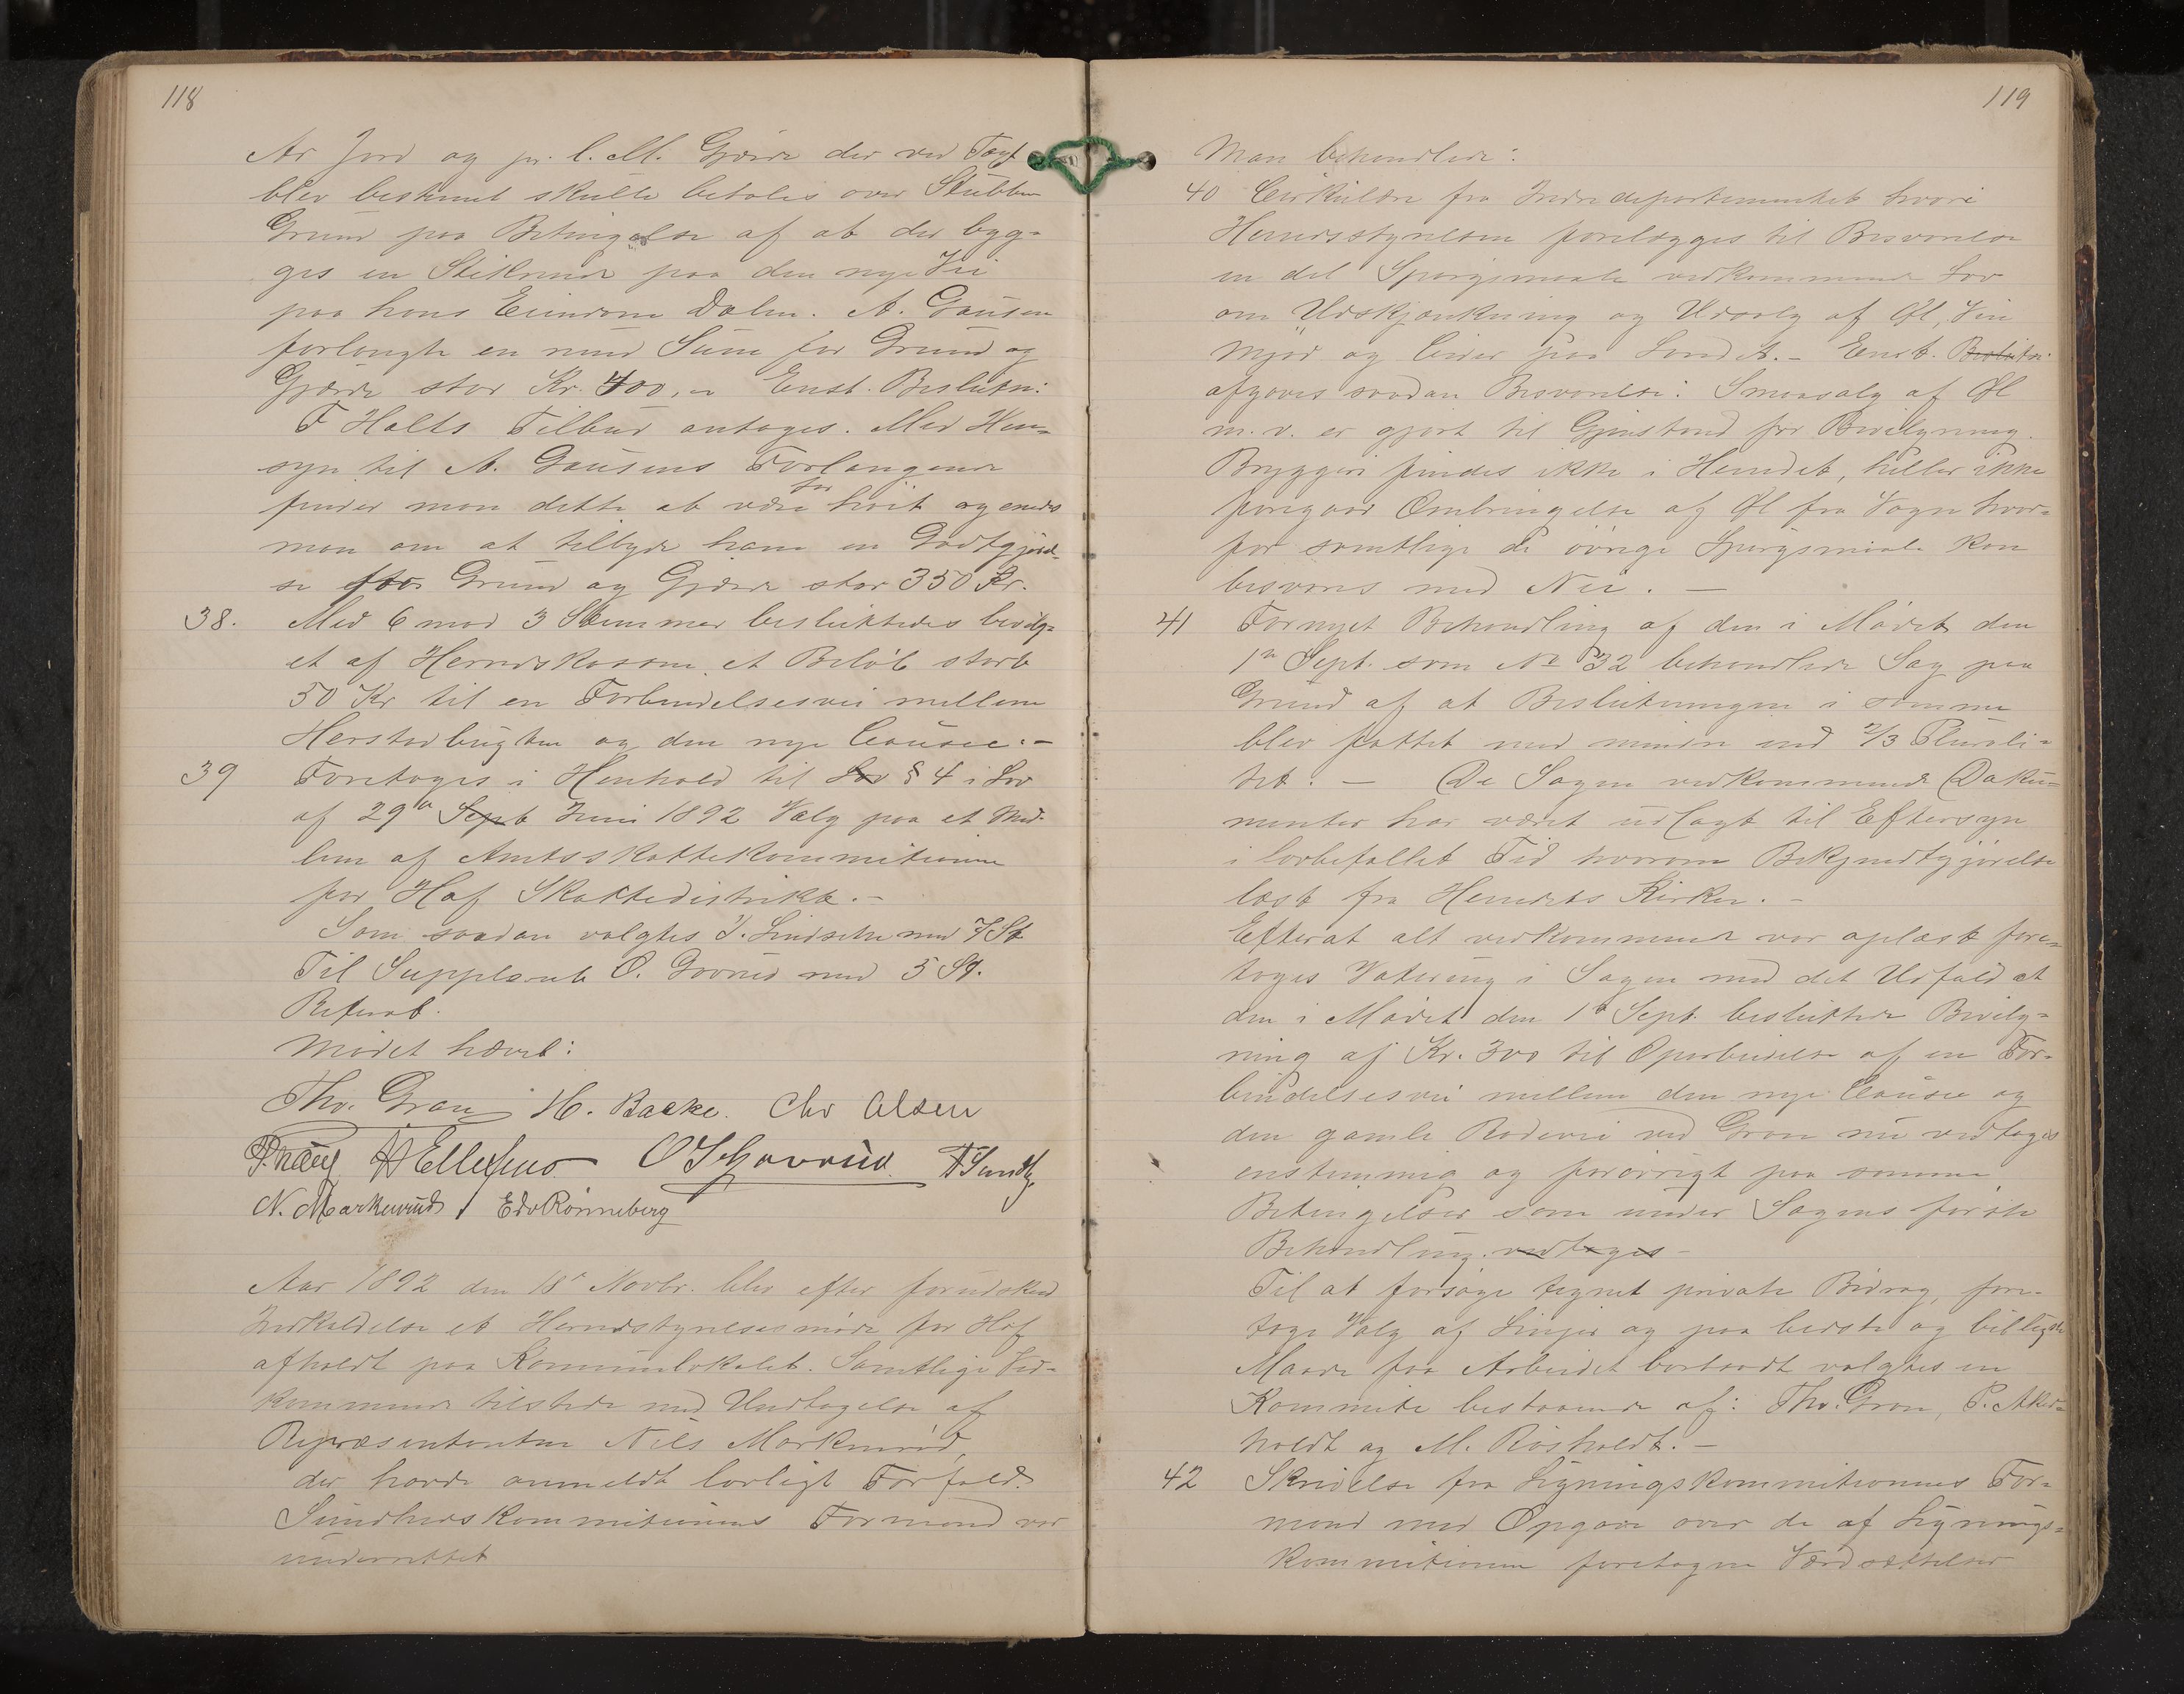 118
Ar Jord og pr. l. M. Gjærde der ved Taxt
blev bestemt skulle betales over Stubben
Grund paa Betingelse af at der byg-
ges en Stikrende paa den nye Vei
paa hans Eiendom Dalen. A. Gausen
forlangte en rund Sum for Grund og
Gjærde stor Kr. 400,- Enst. Beslutn:
F Holts Tilbud antages. Med Hen-
syn til A. Gausens Forlangende
finder man dette at være for høit og enedes
man om at tilbyde ham en Godtgjørel-
se for Grund og Gjærde stor 350 Kr.
38. Med 6 mod 3 Stemmer besluttedes bevilg-
et af Herredskassen et Beløb stort
50 Kr til en Forbindelsesvei mellem
Herstadbugten og den nye Causee.-
39 Foretoges i Henhold til Lov § 4 i Lov
af 29de Sept Juni 1892 Valg paa et Med-
lem af Amtsskattekommitionen
for Hof Skattedistrikt.-
Som saadan valgtes J. Lindseth med 7 St
Til Suppleant O. Govrud med 5 St.
Referat.
Mødet hævet:
Thv. Gran H. Backe. Chr Olsen
A Ellefsen O T Govrud A Sundby
N. Markerud Edv Rønneberg
Aar 1892 den 18de Novbr. blev efter forudskeed
Indkaldelse et Herredstyrelsesmøde for Hof
afholdt paa Komunelokalet. Samtlige Ved-
kommende tilstede med Undtagelse af
Repræsentanten Nils Markerud,
der havde anmeldt lovligt Forfald.
Sundhedskommitionens Formand var
underrettet
119
Man behandlede:
40 Cirkulære fra Indredepartementet hvori
Herredsstyrelsen forelægges til Besvarelse
en del Spørgsmaale vedkommende Lov
om Udskjænkning og Udsalg af Øl, Vin
Mjød og Cider paa Landet.- Enst. Beslutn:
afgaves saadan Besvarelse: Smaasalg af Øl
m.v. er gjort til Gjenstand for Bevilgning.
Bryggeri findes ikke i Herredet, heller ikke
foregaar Ombringelse af Øl fra Vogn hvor-
for samtlige de øvrige Spørgsmaale kan
besvares med Nei. -
41 Fornyet Behandling af den i Mødet den
1ste Sept. som No 32 behandlede Sag paa
Grund af at Beslutningen i samme
blev fattet med mindre end 2/3 Plurali-
tet. - De Sagen vedkommende Doku-
menter har været udlagt til Eftersyn
i lovbefallet Tid hvorom Bekjendtgjørelse
læst fra Herredets Kirker. -
Efterat alt vedkommende var oplæst fore-
toges Votering i Sagen med det Udfald at
den i Mødet den 1ste Sept. besluttede Bevilg-
ning af Kr. 300 til Oparbeidelse af en For-
bindelsesvei mellem den nye Causee og
den gamle Rodevei ved Gran nu vedtages
enstemmig og forøvrigt paa samme
Betingelser som under Sagens første
Behandling. vedtoges -
Til at forsøge tegnet private Bidrag, fore-
tage Valg af Linjer og paa bedste og billigste
Maade faa Arbeidet bortsadt valgtes en
Kommite bestaaende af: Thv. Gran, P. Aker-
holdt og M. Røsholdt. -
42 Skrivelse fra Ligningskommitionens For-
mand med Opgave over de af Lignings-
kommitionen foretagne Værdsættelser